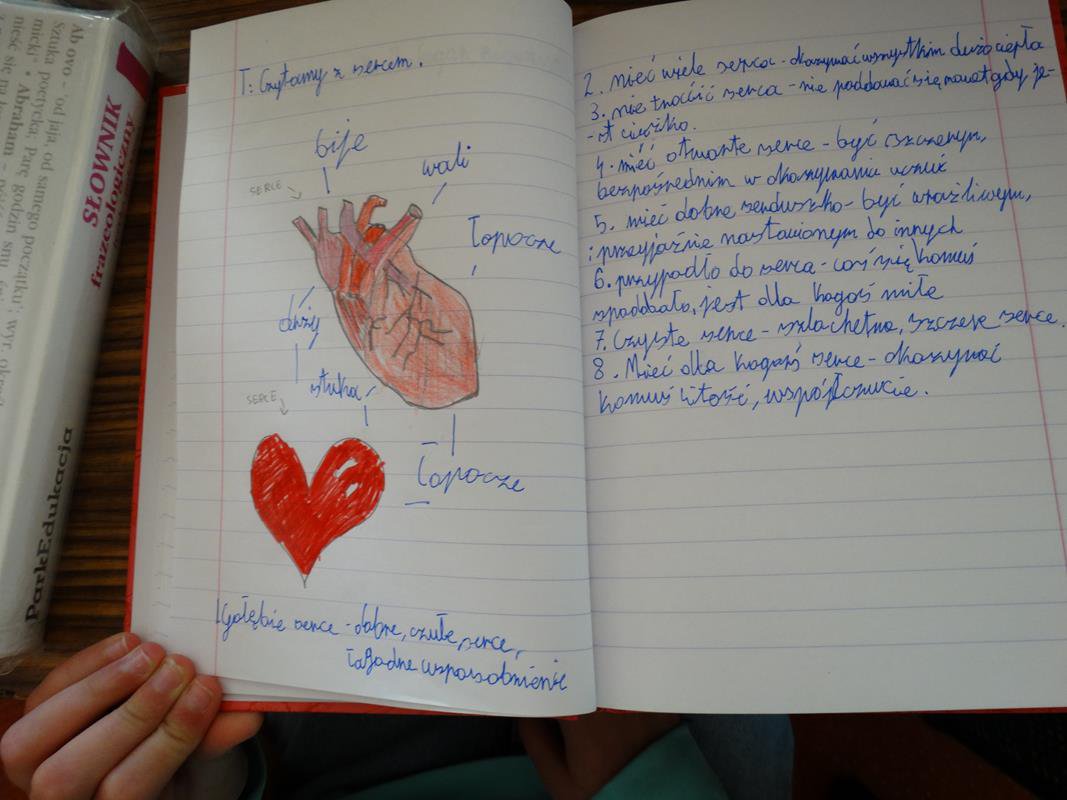 Ab ovo – "od jaja, od samego początku"; wyr.
Sztuka poetycka; Parę godzin snu
micki" • Abraham –
nieść się na
SŁOWNIK
frazeologiczny
ParkEdukacja
T: Czytamy z sercem.
bije
wali
SERCE
Łopocze
drży
stuka
SERCE
Łopocze
1 Gołębie serce - dobre, czułe serce,
łagodne usposobienie
2. mieć wiele serca - okazywać wszystkim dużo ciepła
3. nie tracić serca - nie poddawać się nawet gdy je-
-st ciężko.
4. mieć otwarte serce - być szczerym,
bezpośrednim w okazywaniu uczuć
5. mieć dobre serduszko - być wrażliwym,
i przyjaźnie nastawionym do innych
6. przypadło do serca - coś się komuś
spodobało, jest dla kogoś miłe
7. Czyste serce - szlachetne, szczere serce.
8. Mieć dla kogoś serce - okazywać
komuś litość, współczucie.